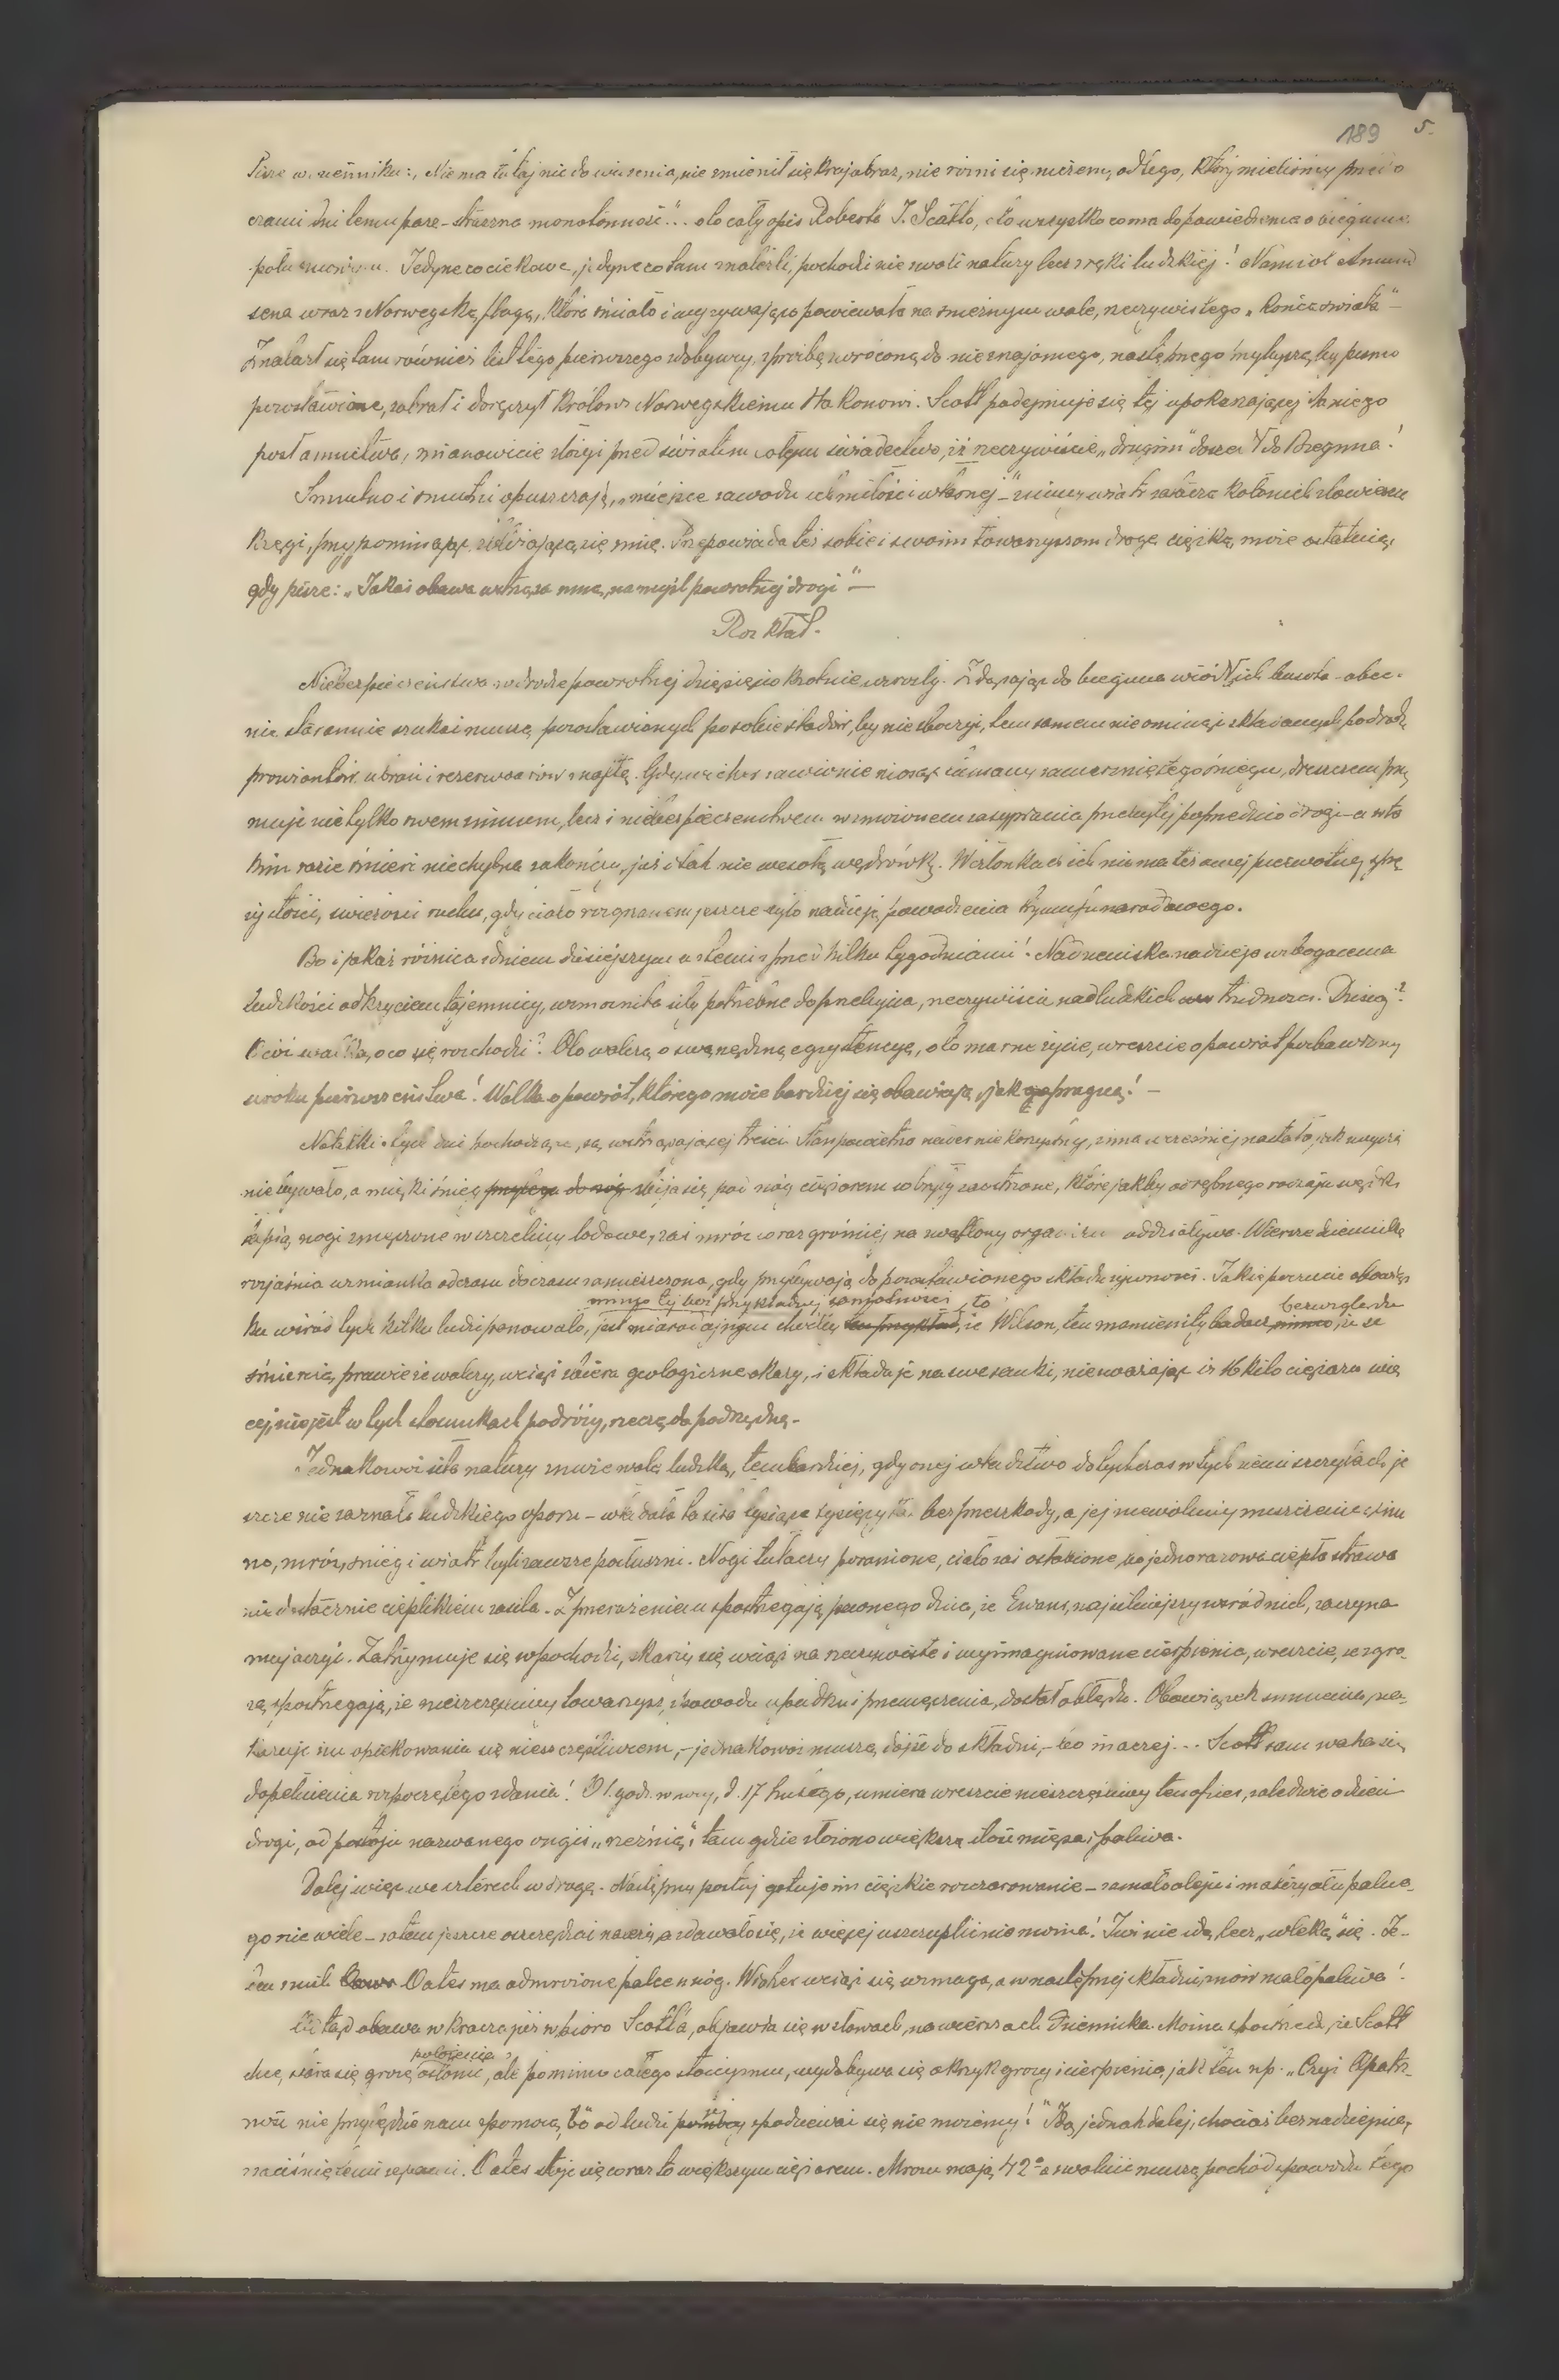 189 5.
Pisze w dzienniku: „Niema tutaj nic do widzenia, nie zmienił się krajobraz, nie różni się niczem, od tego, który mieliśmy przed o
czami dni temu parę - straszna monotonność"... oto cały opis Roberta F. Scotta, oto wszystko co ma do powiedzenia o biegunie
południowym. Jedyne co ciekawe, jedyne co tam znaleźli, pochodzi nie z woli natury lecz z ręki ludzkiej! Namiot Amund
sena wraz z Norwegską flagą, która śmiało i wyzywająco powiewała na śnieżnym wale, rzeczywistego „Końca świata" -
Znalazł się tam również list tego pierwszego zdobywcy, z prośbą zwróconą do nieznajomego, następnego przybysza, by pismo
pozostawione, zabrał i doręczył Królowi Norwegskiemu Hakonowi. Scott podejmuje się tej upokarzającej dla niego
posłannictwa, mianowicie złożyć przed światem całym świadectwo, iż rzeczywiście „drugim" doszedł do Bieguna!
Smutno i smutni opuszczają, „miejsce zawodu ich miłości własnej" - zimny wiatr zatacza koło nich złowieszcze
kręgi, przypominając zbliżającą się zimę. Przepowiada też sobie i swoim towarzyszom drogę ciężką, może ostatnią,
gdy pisze: „Jakaś obawa wstrząsa mną, na myśl powrotnej drogi" -
Rozkład.
Niebezpieczeństwa w drodze powrotnej dziesięciokrotnie wzrosły. Zdążając do bieguna wiódł ich busola - obec-
nie starannie szukać muszą pozostawionych po sobie śladów, by nie zboczyć, tem samem nie ominąć składanych po drodze
prowiantów, ubrań i rezerwoarów z naftą. Gdy wicher zawiewnie niosąc tumany zamarzniętego śniegu, dreszczem prze
muje nietylko swem zimnem, lecz i niebezpieczeństwem wzmożonem zasypania przebytej poprzednio drogi - a w ta
kim razie śmierć niechybna zakończy, już i tak nie wesołą wędrówkę. W członkach ich niema też owej pierwotnej sprę
żystości, świeżości ruchu, gdy ciało rozgrzanem jeszcze było nadzieją powodzenia tryumfu narodowego.
Bo i jakaż różnica z dniem dzisiejszym a z temi z przed kilku tygodniami! Nadziemska nadzieja wzbogacenia
ludzkości odkryciem tajemnicy, wzmocniła siły potrzebne do przebycia, rzeczywiście nadludzkich trudności. Dzisiaj?
O cóż walka, o co się rozchodzi? Oto walczą o swą nędzną egzystencyę, o to marne życie, wreszcie o powrót pozbawiony
uroku pierwszeństwa! Walka o powrót, którego może bardziej się obawiają, jak go pragną! -
Notatki z tych dni pochodzące, są wstrząsającej treści. Stan powietrza nader niekorzystny, zima wcześniej nastała, jak zwyczaj
nie bywało, a miękki śnieg przylega do nóg zbija się pod nóg ciężarem w bryły zaostrzone, które jakby odrębnego rodzaju wędki,
łapią nogi zmęczone w szczeliny lodowe, zaś mróz coraz groźniej na wątlony organizm oddziaływa. Wiersze dziennika
rozjaśnia wzmianka od czasu do czasu zamieszczona, gdy przybywają do pozostawionego składu żywności. Jakie poczucie obowiąz
mimo tej bez przykładnej samotności, to bezwzględu
ku wśród tych kilku ludzi panowało, jest miarodajnym chwili ten przykład, że Wilson, ten znamienity badacz mimo, że ze
śmiercią prawie że walczy, wciąż zbiera geologiczne okazy, i składa je na swe sanki, nie zważając iż 16 kilo ciężaru wię
cej, nie jest w tych stosunkach podróży, rzeczą podrzędną. -
Jednakowoż siła natury zmiewala ludzką, tembardziej, gdy onej władztwo dotychczas w tych niemi szczytach je
szcze nie zaznało ludzkiego oporu - władała ta siła tysiące tysięcy lat bez przeszkody, a jej niewolnicy mieszczenie zim
no, mróz, śnieg i wiatr byli zawsze posłuszni. Nogi tułaczy poranione, ciało zaś osłabione, bo jednorazowa ciepła strawa
nie dostatecznie cieplikiem zasila. Z przerażeniem spostrzegają pewnego dnia, że Evans, najsilniejszy wśród nich, zaczyna
majaczyć. Zatrzymuje się w pochodzie, skarży się wciąż na rzeczywiste i wyimaginowane cierpienia, wreszcie, ze zgro-
zą, spostrzegają, że nieszczęśliwy towarzysz, z powodu upadku i przemęczenia, dostał obłędu. Obowiązek sumienia, na-
kazuje im opiekowania się nieszczęśliwcem, - jednakowoż muszą dojść do składni, - bo inaczej... Scott sam waha się
dopełnienia rozpoczętego zdania! O 1. godz. w nocy, d. 17 Lutego, umiera wreszcie nieszczęśliwy ten oficer, zaledwie o dzień
drogi, od postoju nazwanego ongiś „rzeźnią"; tam gdzie złożono większą ilość mięsa i paliwa.
Dalej więc we czterech w drogę. Następny postój gotuje im ciężkie rozczarowanie - zamało oleju i materyału palne-
go niewiele - zatem jeszcze oszczędzać należą, a zdawało się, że więcej uszczuplić nie można! Już nie idą, lecz „wleką" się. Je-
den z nich Oates ma odmrożone palce u nóg. Wicher wciąż się wzmaga, a w następnej składni, znów mało paliwa!
Odtąd obawa wkracza już w pióro Scotta, objawia się w słowach, na wierszach dziennika. Można spostrzedz, że Scott
położenia
chcę stara się grozę osłonić, ale pomimo całego stoicyzmu, wydobywa się okrzyk grozy i cierpienia, jak ten np. „Czyż Opatrz-
ność nie przyjdzie nam z pomocą, bo od ludzi spodziewać się nie możemy!" Idą jednak dalej, chociaż beznadziejnie,
zaciśniętemi zębami. Oates staje się coraz to większym ciężarem. Mrozu mają 42° a zwolnić muszą pochód z powodu tego